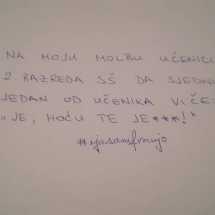 NA MOJU MOLBU UČENICI
2. RAZREDA SŠ DA SJEDNE
JEDAN OD UČENIKA VIČE:
"JE, HOĆU TE JE***!"
#ijasamfranjo